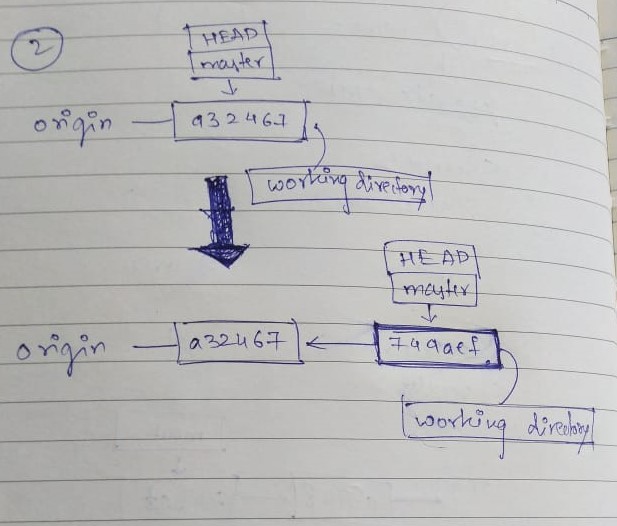 2
HEAD
master
origin a32467
working directory
HEAD
master
origin a32467 749aef
working directory